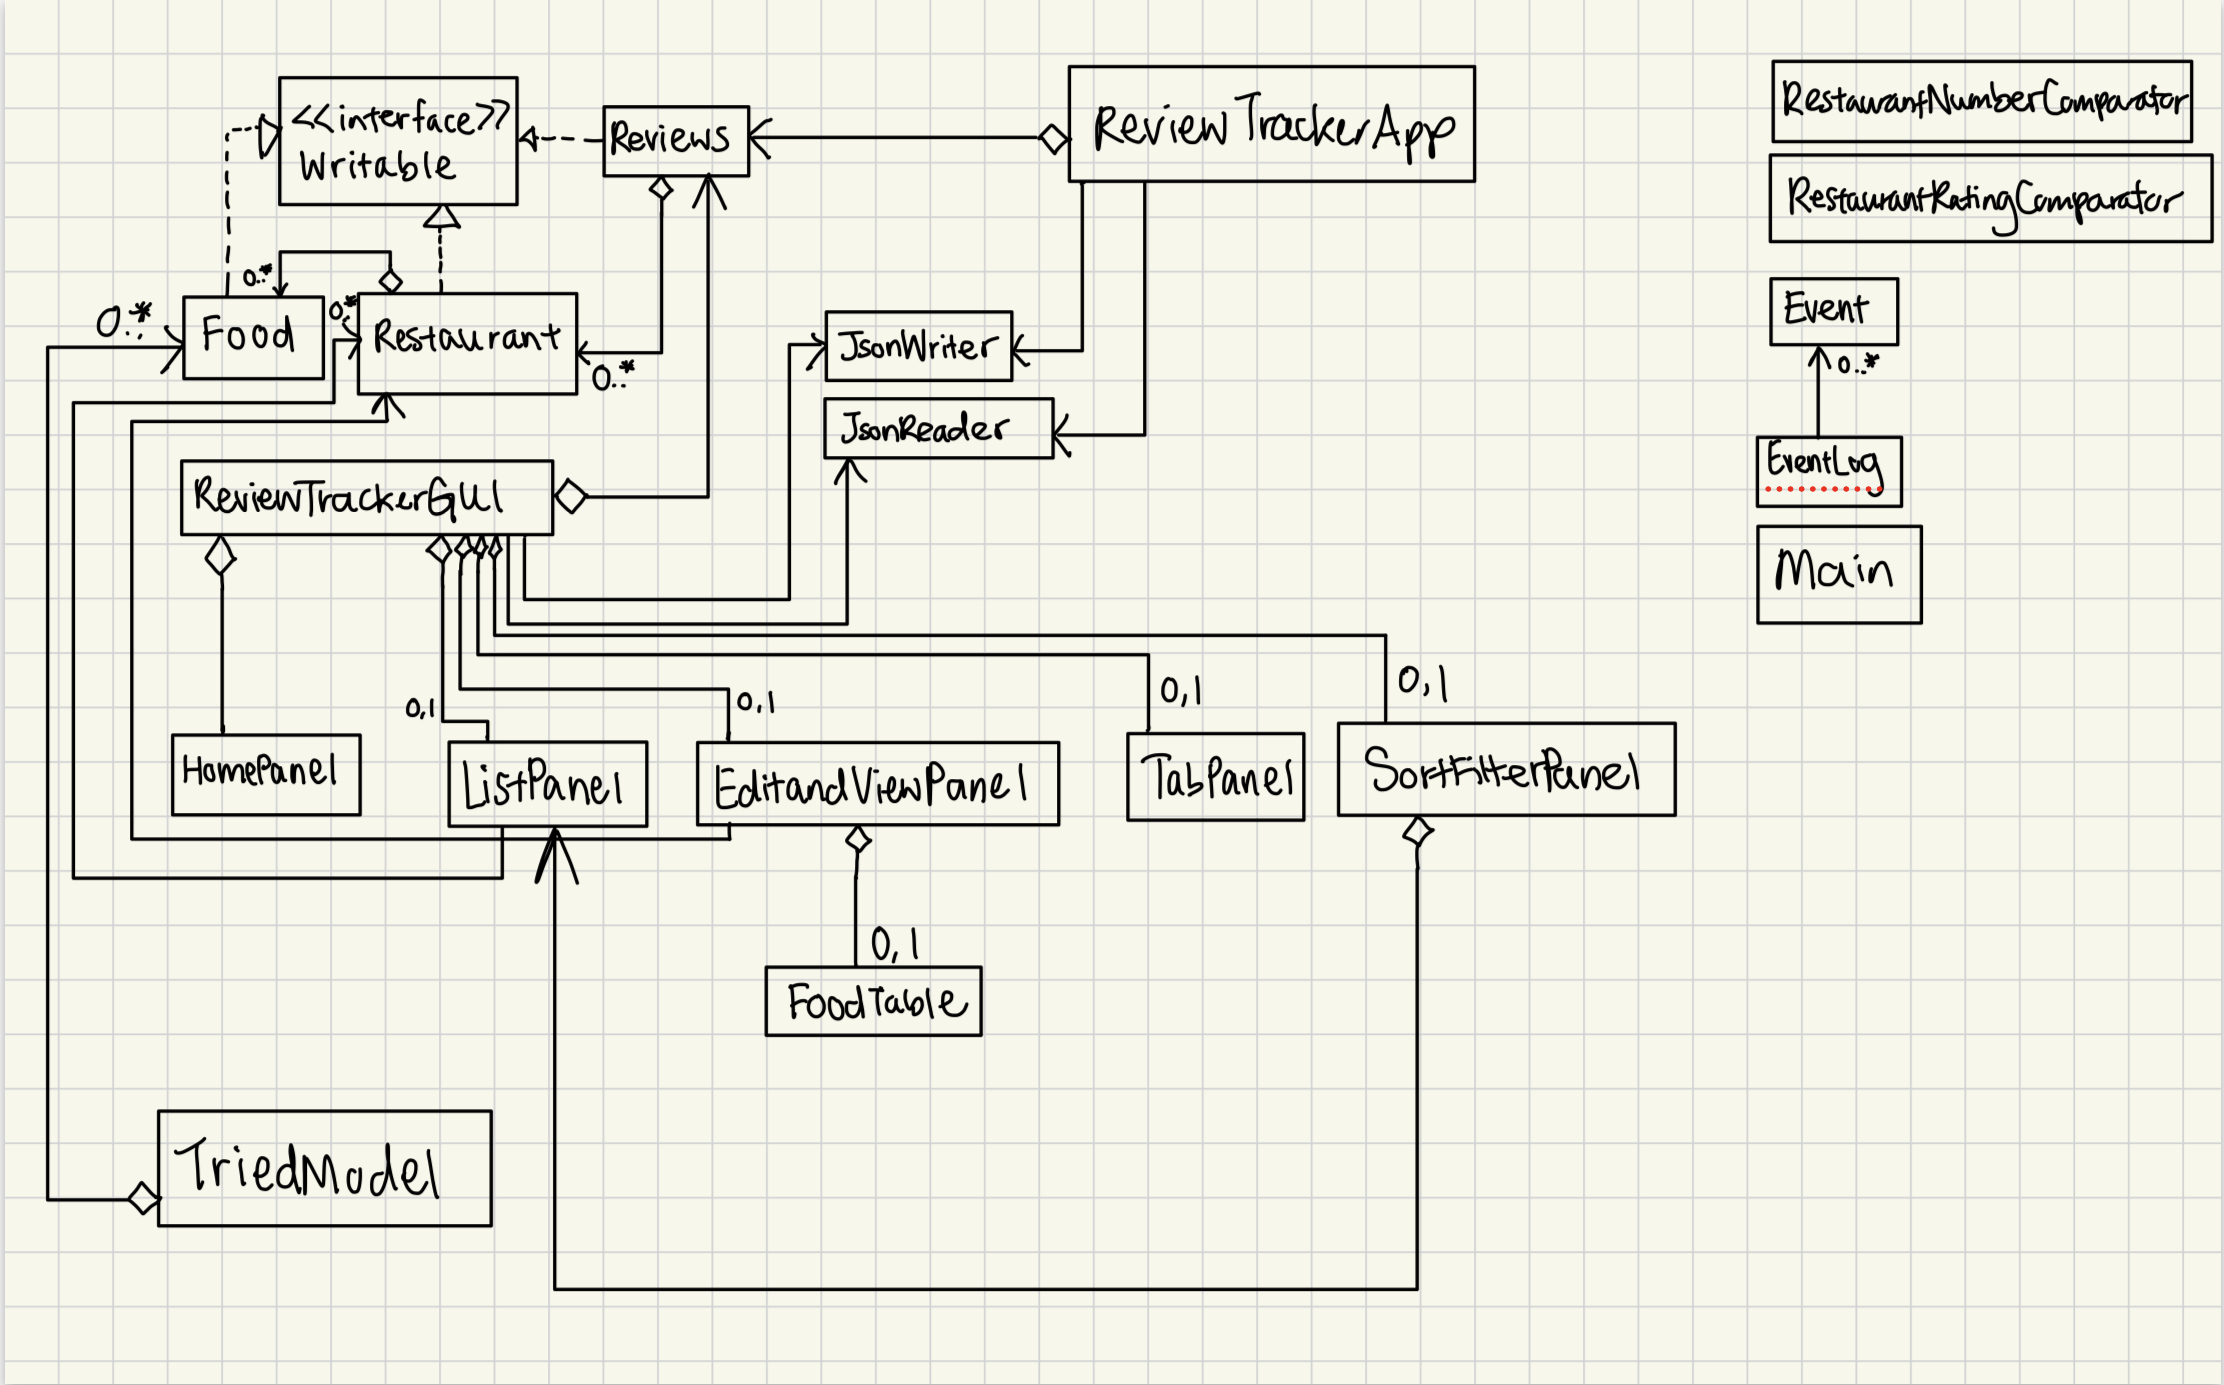 <<interface>>
Writable
Reviews
ReviewTrackerApp
RestaurantNumberComparator
RestaurantRatingComparator
Event
0..*
EventLog
Main
0..*
0..*
Food
0..*
Restaurant
0..*
JsonWriter
JsonReader
ReviewTrackerGUI
0,1
0,1
0,1
0,1
HomePanel
ListPanel
EditandViewPanel
TabPanel
SortFilterPanel
0,1
FoodTable
TriedModel